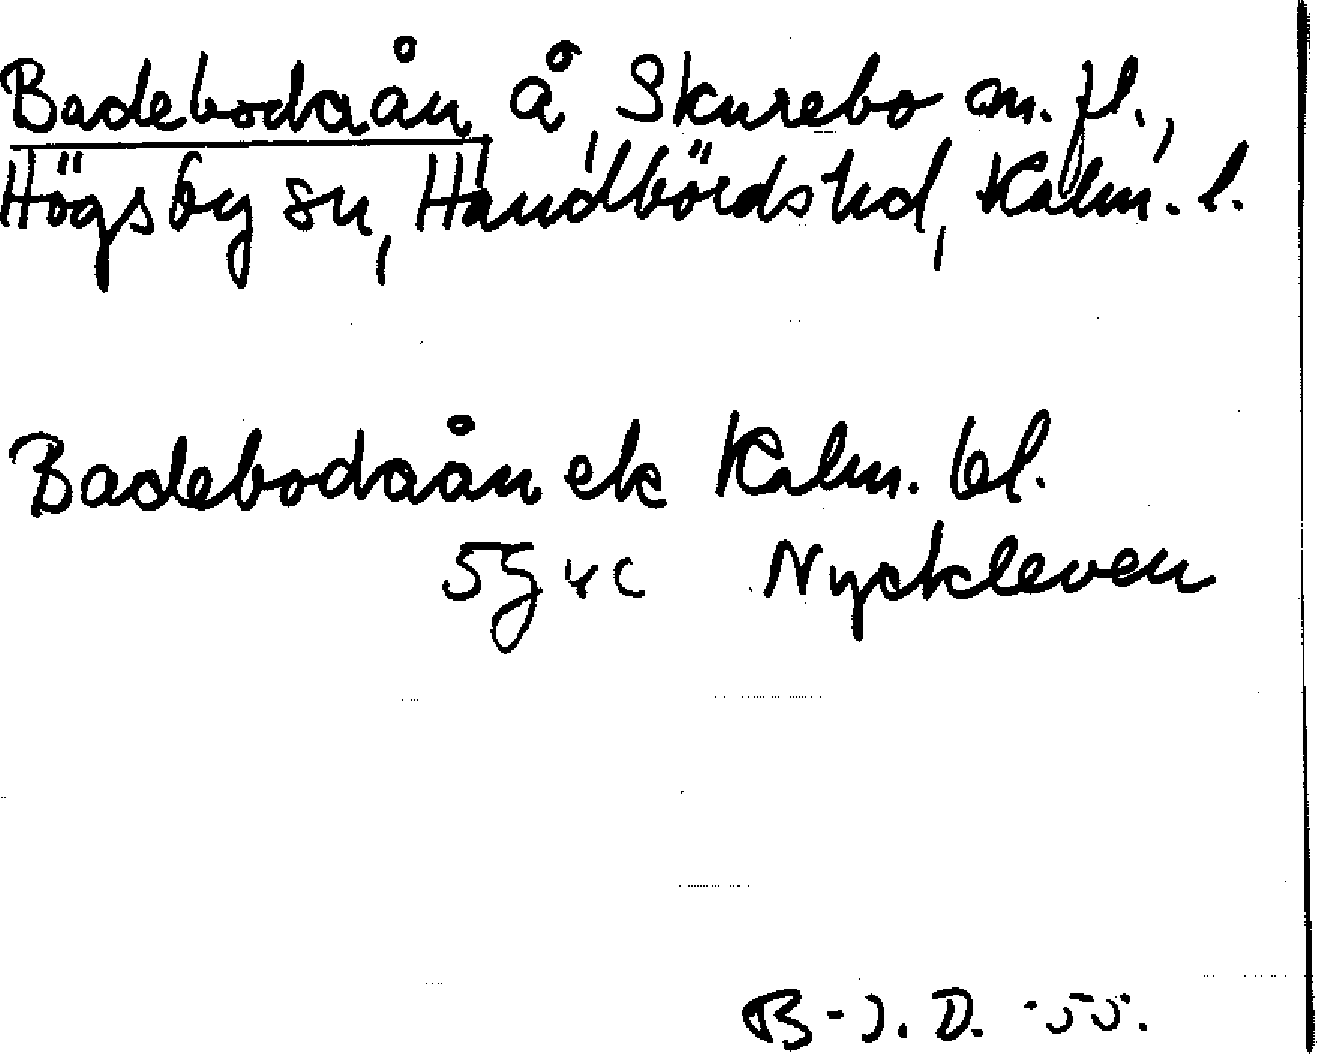 Badebodaån, å, Skurebo m. fl.,
Högsby sn, Handbörds hd, Kalm. l.
Badebodaån ek Kalm. bl.
5G4c Nyckleven
B-J. D. -55.